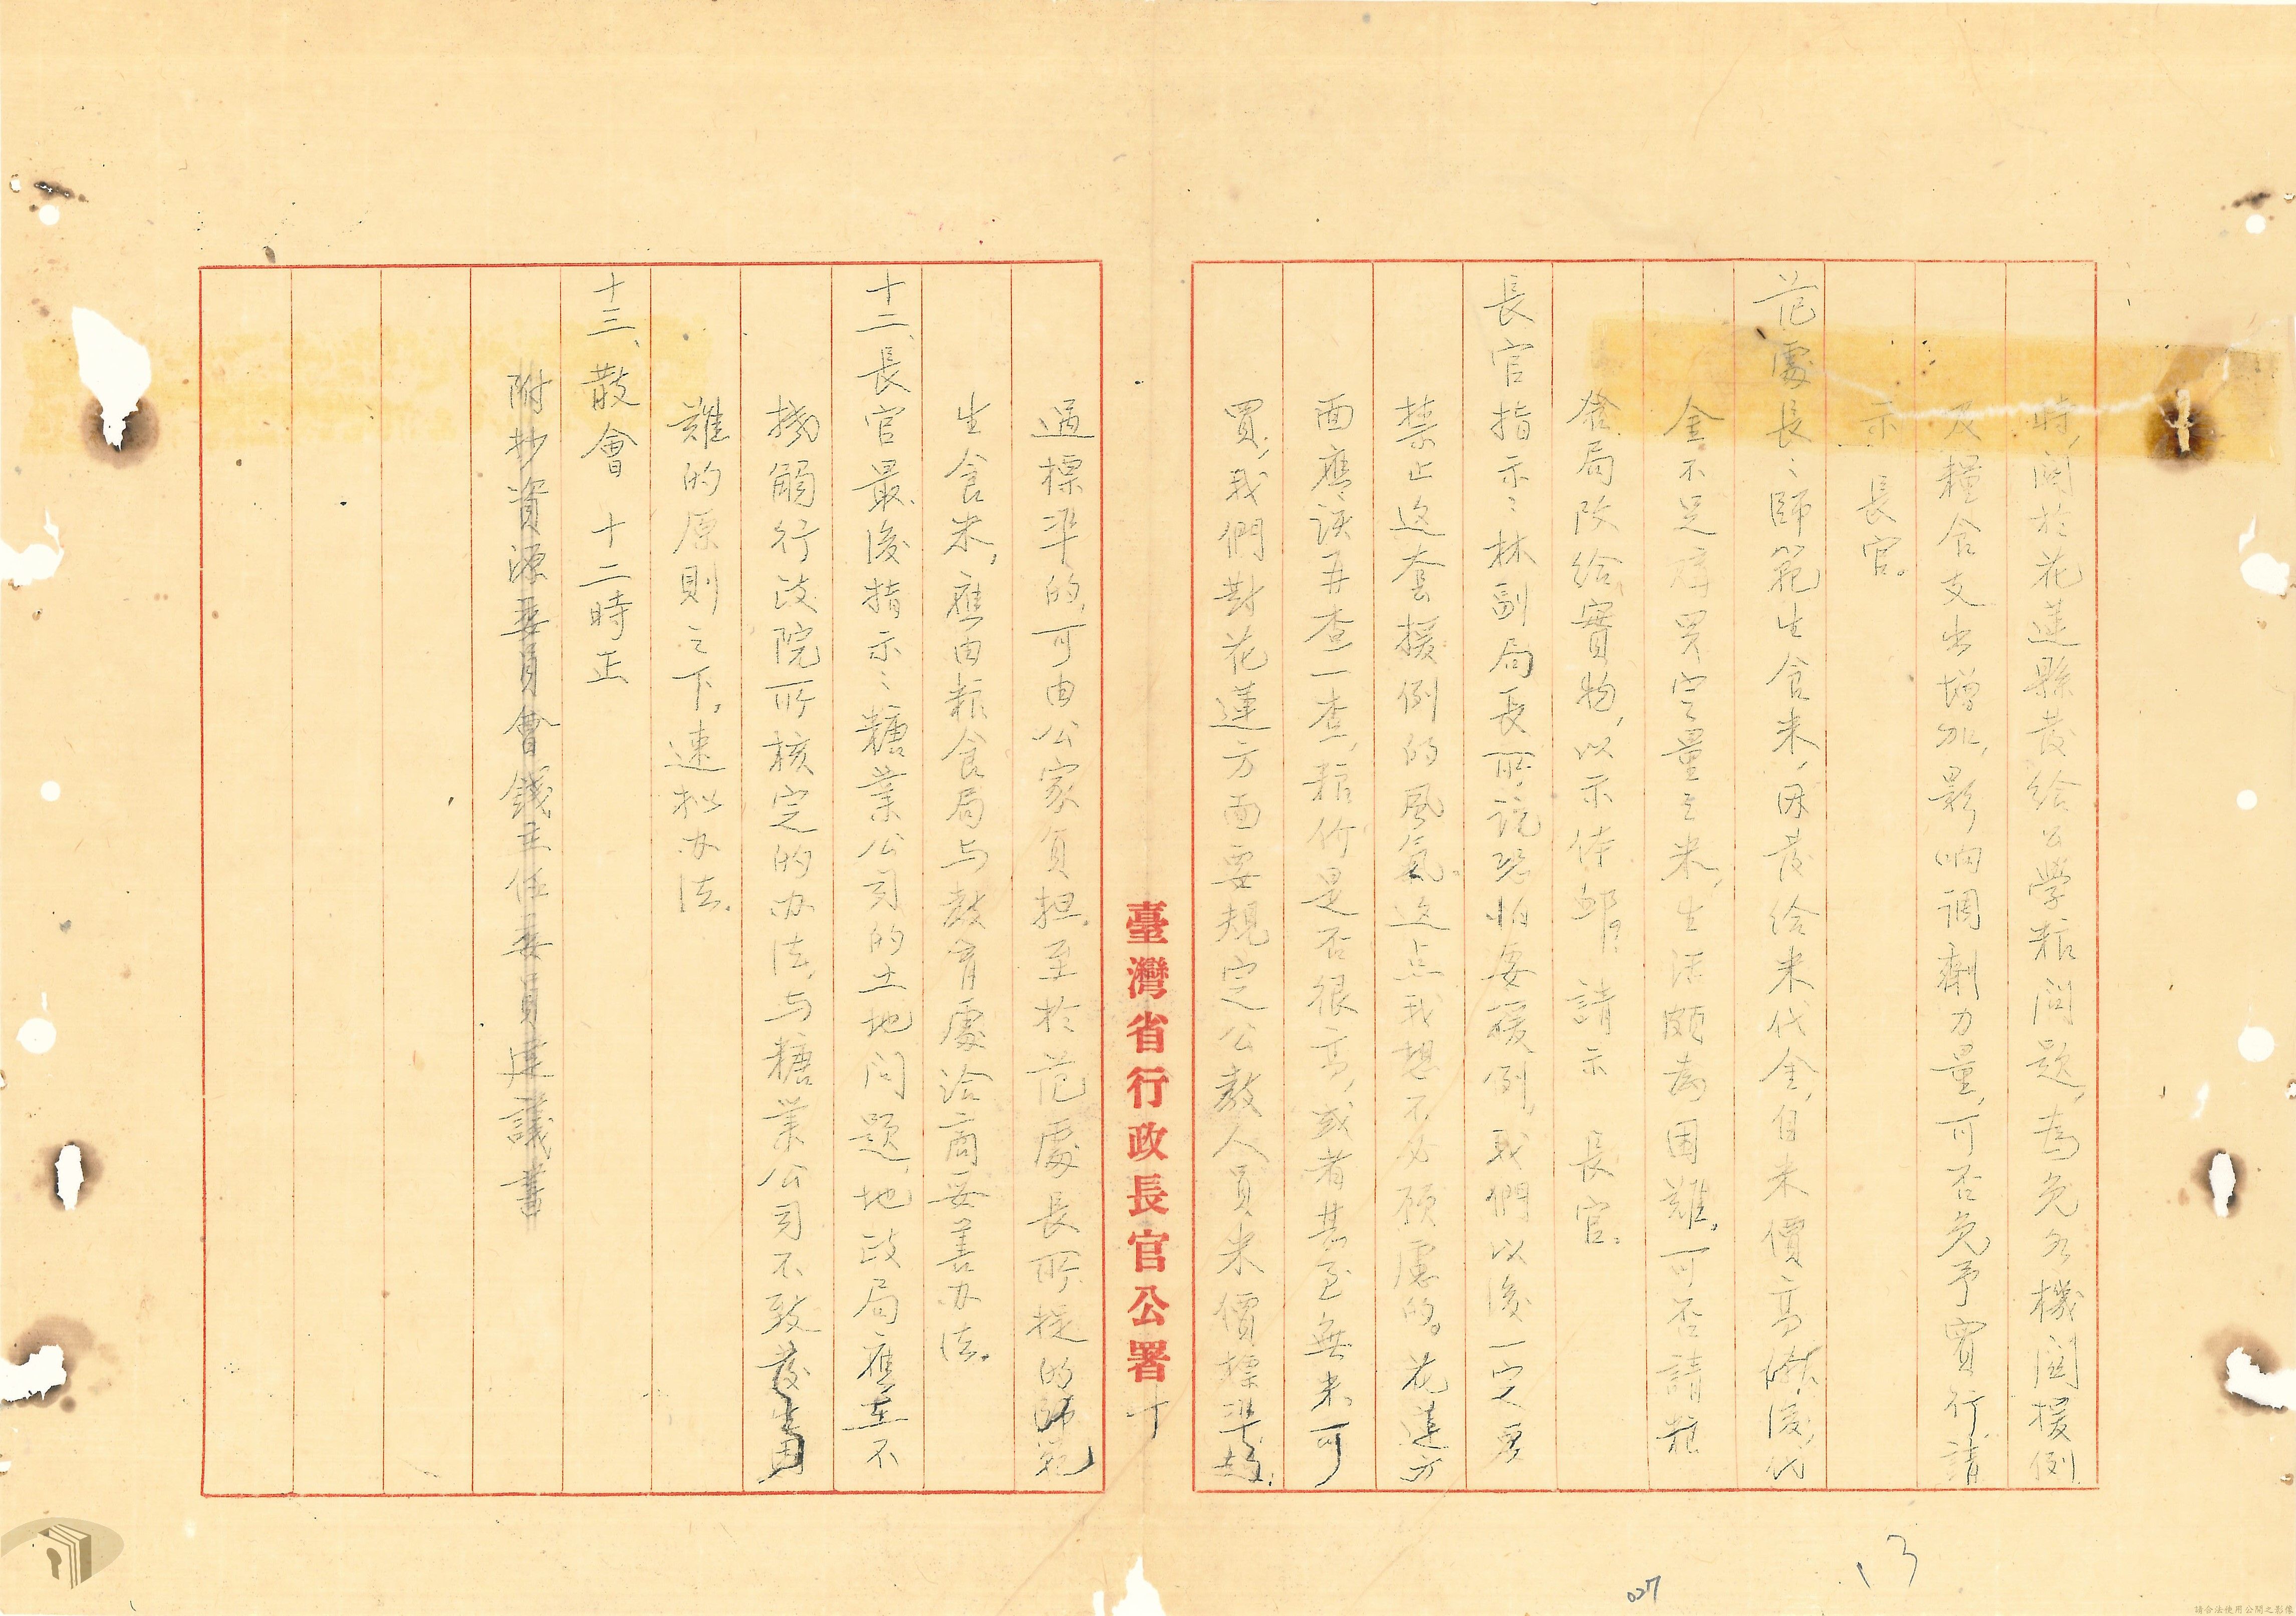 時，關於花蓮縣發給公學粮問題，為免各機關援例
及糧食支出增加，影响調劑力量，可否免予實行請
示　長官。
范處長：師範生食米，因發給米代金，自米價高漲後，代
金不足購買定量之米，生活頗為困難。可否請粮
食局改給實物，以示体卹？請示　長官。
長官指示：林副局長所說恐怕要援例，我們以後一定要
禁止这套援例的風氣。这点我想不必顾慮的。花蓮方
面應該再查一查，粮价是否很高，或者甚至無米可
買，我們對花蓮方面要規定公教人員米價標準，超
過標準的，可由公家負担。至於范處長所提的師範
生食米，應由粮食局与教育處洽商妥善办法。
十二、長官最後指示：糖業公司的土地问题，地政局應在不
抵觸行政院所核定的办法，与糖業公司不致發生困
難的原則之下，速拟办法。
十三、散會　十二時正
附抄資源委員會錢主任委員建議書
臺灣省行政長官公署
十
13
027
請合法使用公開之影像